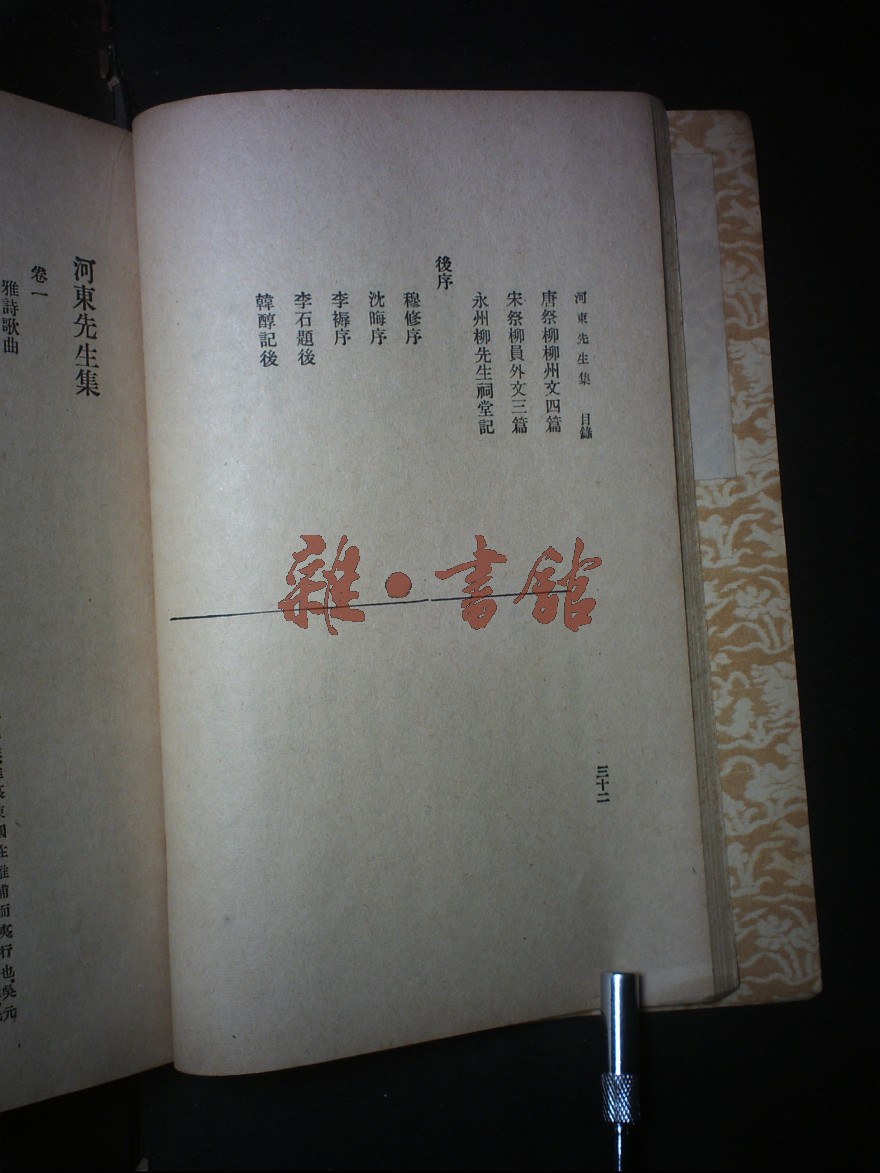 河東先生集 目錄
唐祭柳柳州文四篇
宋祭柳員外文三篇
永州柳先生祠堂記
後序
穆修序
沈晦序
李褥序
李石題後
韓醇記後
三十二
雜·書館
河東先生集
卷一
雅詩歌曲